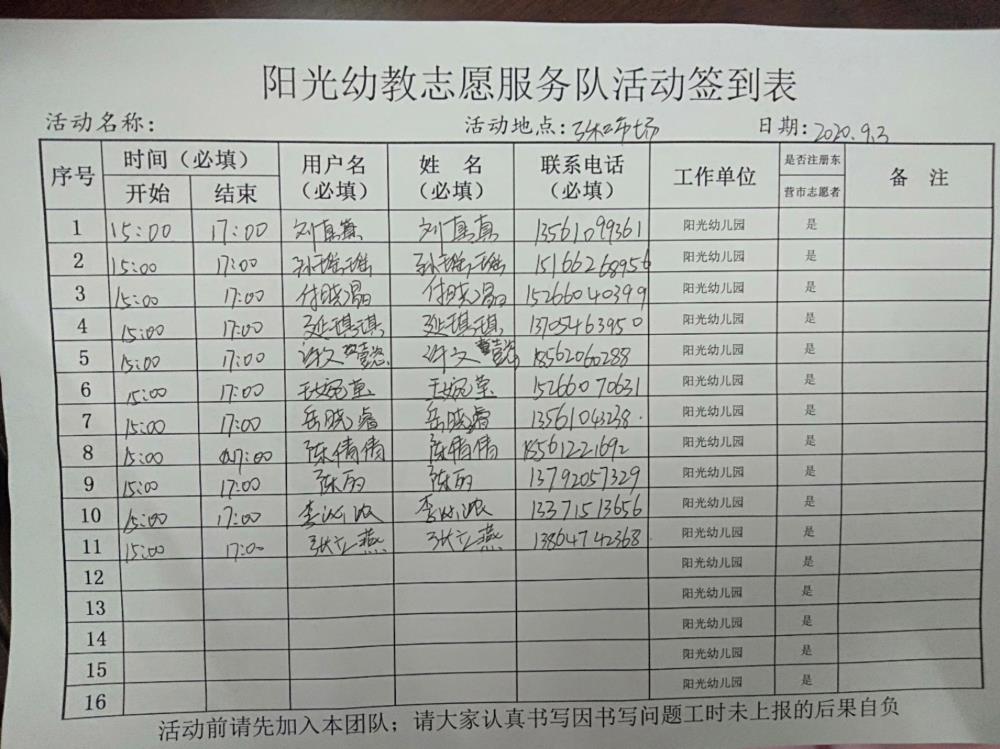 阳光幼教志愿服务队活动签到表
活动名称: 活动地点: 市场 日期: 2020.9.3
序号 时间（必填） 用户名（必填） 姓 名（必填） 联系电话（必填） 工作单位 是否注册东营市志愿者 备 注
开始 结束
1 15:00 17:00 刘真真 刘真真 13561099361 阳光幼儿园 是
2 15:00 17:00 孙瑶瑶 孙瑶瑶 15166268956 阳光幼儿园 是
3 15:00 17:00 付晓 付晓 15266040399 阳光幼儿园 是
4 15:00 17:00 延琪琪 延琪琪 13705463950 阳光幼儿园 是
5 15:00 17:00 许文懿 许文懿 18562060288 阳光幼儿园 是
6 15:00 17:00 15266070631 阳光幼儿园 是
7 15:00 17:00 岳晓睿 岳晓睿 13561043238 阳光幼儿园 是
8 15:00 17:00 陈倩倩 陈倩倩 18561221692 阳光幼儿园 是
9 15:00 17:00 陈丽 陈丽 13792057329 阳光幼儿园 是
10 15:00 17:00 李 李 13371513656 阳光幼儿园 是
11 15:00 17:00 张立燕 张立燕 13864742368 阳光幼儿园 是
12 阳光幼儿园 是
13 阳光幼儿园 是
14 阳光幼儿园 是
15 阳光幼儿园 是
16 阳光幼儿园 是
活动前请先加入本团队；请大家认真书写因书写问题工时未上报的后果自负